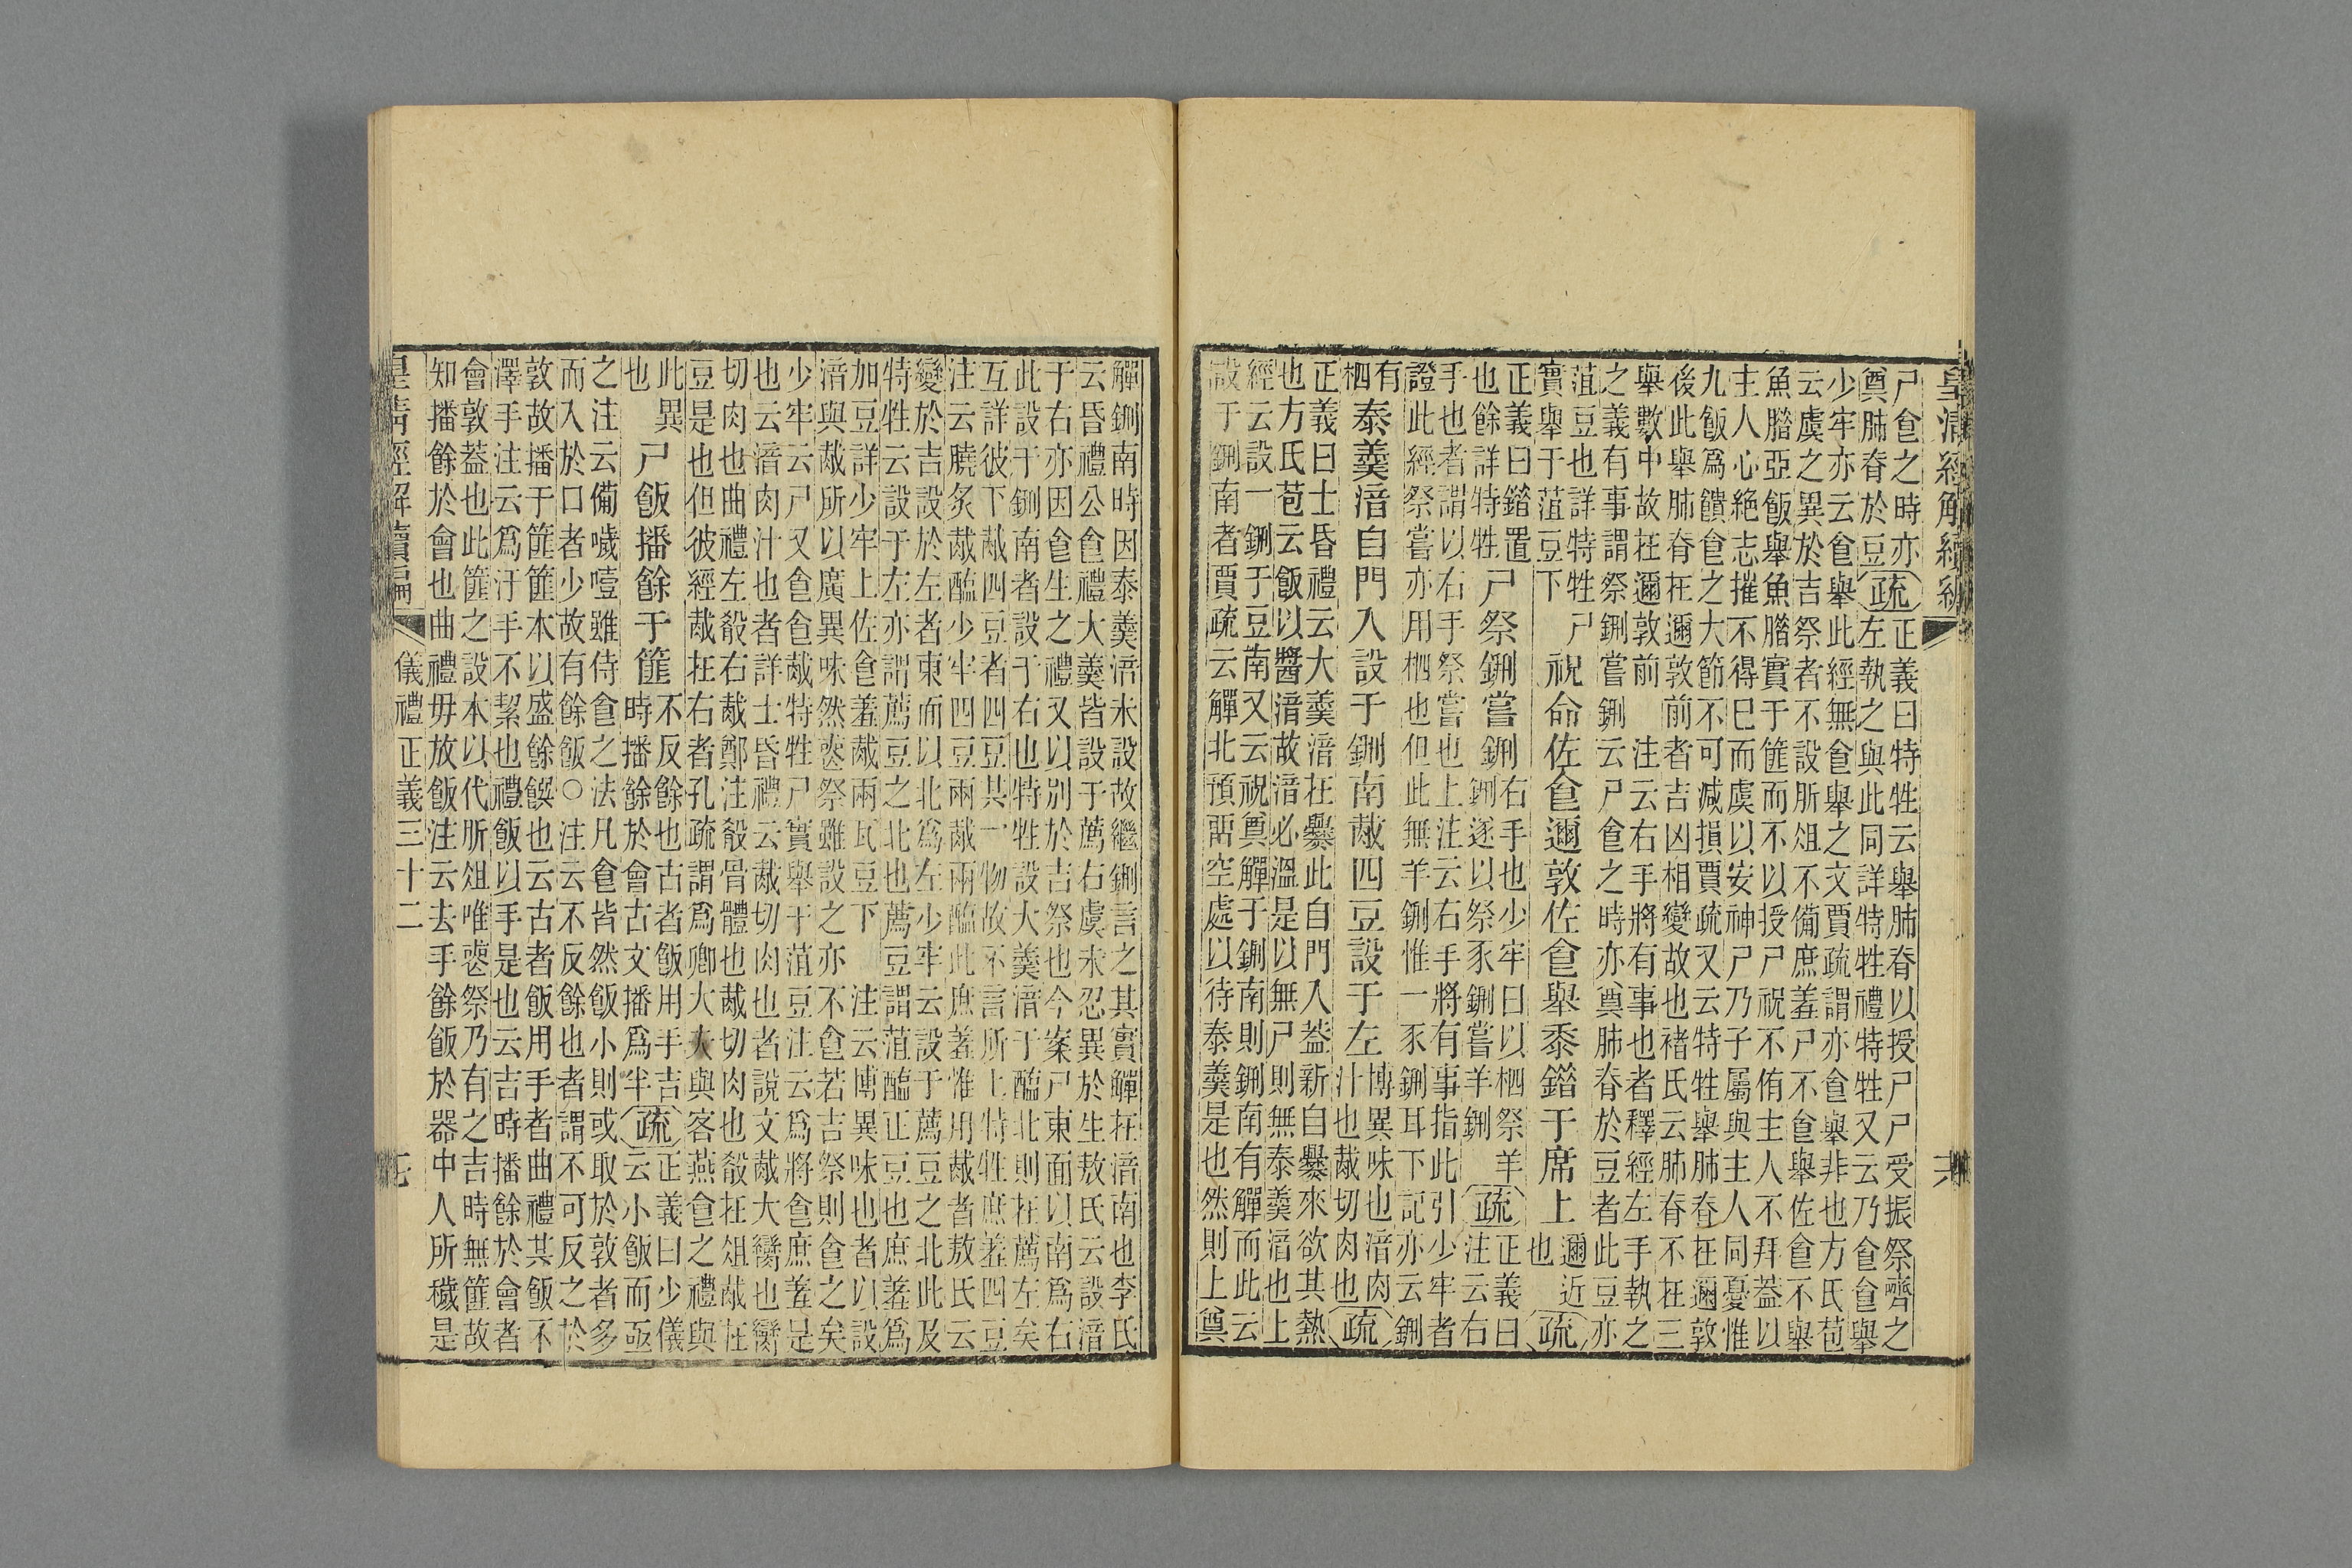 皇清經解續編
尸食之時亦
奠肺脊於豆
疏
正義曰特牲云舉肺脊以授尸尸受振祭嚌之
左執之與此同詳特牲禮特牲又云乃食食舉
少牢亦云食舉此經無食舉之文賈疏謂亦食舉非也方氏苞
云虞之異於吉祭者不設肵俎不備庶羞尸不食舉佐食不舉
魚腊亞飯舉魚腊實于篚而不以授尸祝不侑主人不拜蓋以
主人心絕志摧不得巳而虞以安神尸乃子屬與主人同憂惟
九飯爲饋食之大節不可減損賈疏又云特牲舉肺脊在邇敦
後此舉肺脊在邇敦前者吉凶相變故也褚氏云肺脊不在三
舉數中故在邇敦前　注云右手將有事也者釋經左手執之
之義有事謂祭鉶嘗鉶云尸食之時亦奠肺脊於豆者此豆亦
菹豆也詳特牲尸
實舉于菹豆下
祝命佐食邇敦佐食舉黍錯于席上
邇近
也
疏
正義曰錯置
也餘詳特牲
尸祭鉶嘗鉶
右手也少牢曰以柶祭羊
鉶遂以祭豕鉶嘗羊鉶
疏
正義曰
注云右
手也者謂以右手祭嘗也上注云右手將有事指此引少牢者
證此經祭嘗亦用柶也但此無羊鉶惟一豕鉶耳下記亦云鉶
有
柶
泰羹湆自門入設于鉶南胾四豆設于左
博異味也湆肉
汁也胾切肉也
疏
正義曰士昏禮云大羹湆在爨此自門入蓋新自爨來欲其熱
也方氏苞云飯以醬湆故湆必溫是以無尸則無泰羹湆也上
經云設一鉶于豆南又云祝奠觶于鉶南則鉶南有觶而此云
設于鉶南者賈疏云觶北預留空處以待泰羹是也然則上奠
觶鉶南時因泰羹湆未設故繼鉶言之其實觶在湆南也李氏
云昏禮公食禮大羹皆設于薦右虞未忍異於生敖氏云設湆
于右亦因食生之禮又以別於吉祭也今案尸東面以南爲右
此設于鉶南者設于右也特牲設大羹湆于醢北則在薦左矣
互詳彼下胾四豆者四豆其一物故不言所上特牲庶羞四豆
注云膮炙胾醢少牢四豆兩胾兩醢此庶羞惟用胾者敖氏云
變於吉設於左者東面以北爲左少牢云設于薦豆之北此及
特牲云設于左亦謂薦豆之北也薦豆謂菹醢正豆也庶羞爲
加豆詳少牢上佐食羞胾兩瓦豆下　注云博異味也者以設
湆與胾所以廣異味然喪祭雖設之亦不食若吉祭則食之矣
少牢云尸又食食胾特牲尸實舉于菹豆注云爲將食庶羞是
也云湆肉汁也者詳士昏禮云胾切肉也者說文胾大臠也臠
切肉也曲禮左殽右胾鄭注殽骨體也胾切肉也殽在俎胾在
豆是也但彼經胾在右者孔疏謂爲卿大夫與客燕食之禮與
此異
也
尸飯播餘于篚
不反餘也古者飯用手吉
時播餘於會古文播爲半
疏
正義曰少儀
云小飯而亟
之注云備噦噎雖侍食之法凡食皆然飯小則或取於敦者多
而入於口者少故有餘飯○注云不反餘也者謂不可反之於
敦故播于篚篚本以盛餘饌也云古者飯用手者曲禮其飯不
澤手注云爲汙手不絜也禮飯以手是也云吉時播餘於會者
會敦蓋也此篚之設本以代肵俎唯喪祭乃有之吉時無篚故
知播餘於會也曲禮毋放飯注云去手餘飯於器中人所穢是
皇清經解續編
儀禮正義三十二